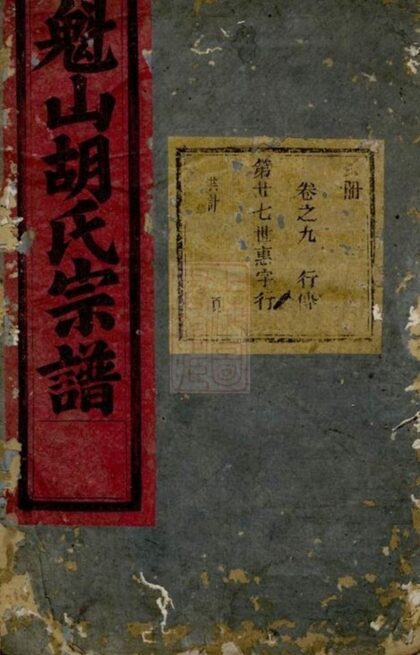 魁山胡氏宗譜
附
卷之九 行傳
第廿七世惠字行
共計 頁